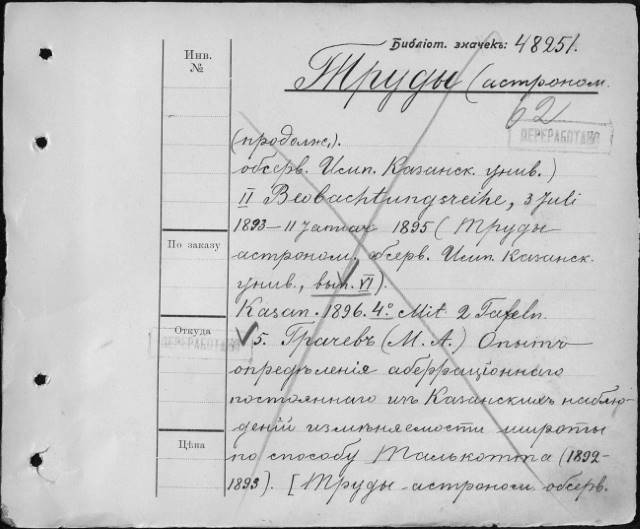 Библіот. значекъ: 48251.
Инв.
№
Труды (астроном.
62
ПЕРЕРАБОТАНО
(продолж.).
обсерв. Имп. Казанск. унив.)
II Beobachtungsreihe, 3 Juli
1893–11 Januar 1895 (Труды
По заказу
астроном. обсерв. Имп. Казанск.
унив., вып. VI).
Kazan. 1896. 4° Mit 2 Tafeln.
Откуда
5. Грачевъ (М. А.) Опытъ
ПЕРЕРАБОТАНО
опредѣленія аберраціоннаго
постояннаго изъ Казанскихъ наблю-
деній измѣняемости широты
Цѣна
по способу Талькотта (1892-
1893). [Труды астроном. обсерв.